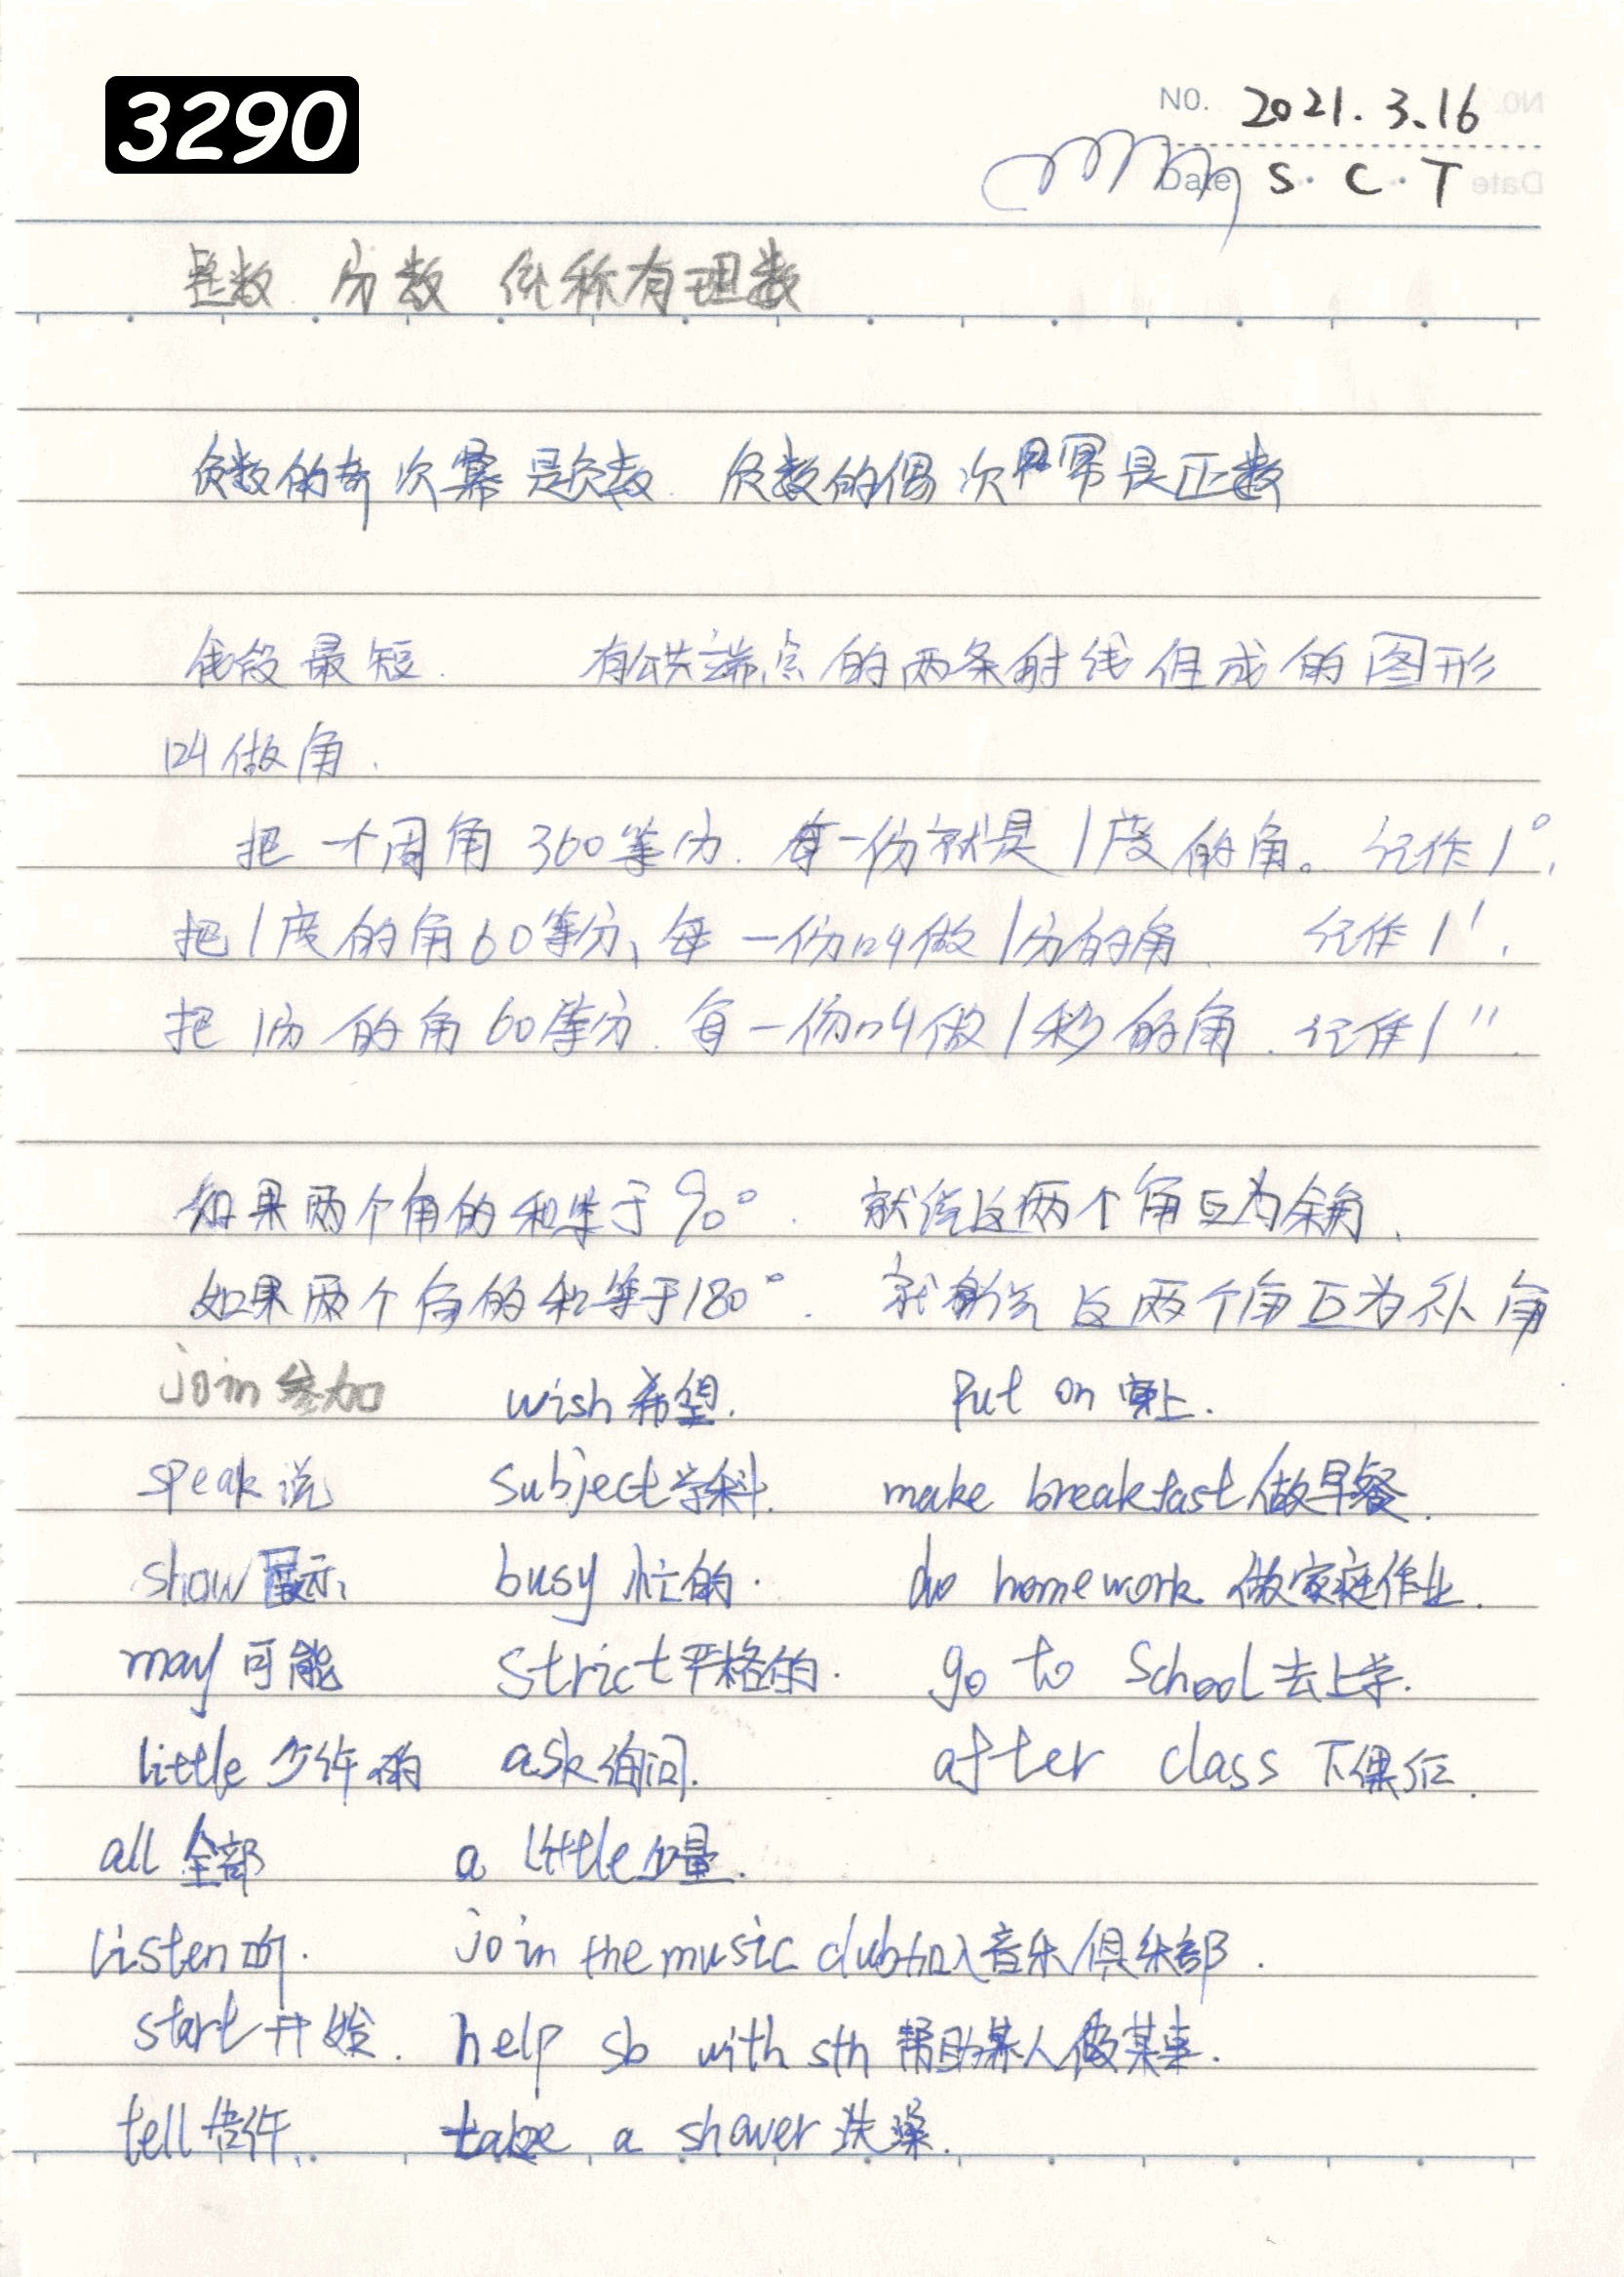 3290
NO. 2021.3.16
Date S·C·T
整数 分数 统称有理数
负数的奇次幂是负数. 负数的偶次幂是正数
线段最短. 有公共端点的两条射线组成的图形
叫做角.
把一个周角360等分. 每一份就是1度的角。记作1°,
把1度的角60等分, 每一份叫做1分的角. 记作1′,
把1分的角60等分. 每一份叫做1秒的角. 记作1″.
如果两个角的和等于90°. 就说这两个角互为余角.
如果两个角的和等于180°. 就说这两个角互为补角
join参加 wish希望. Put on 穿上.
speak说 Subject学科. make breakfast做早餐.
show展示, busy忙的. do homework 做家庭作业.
may可能 Strict严格的. go to School去上学.
little少许的 ask询问. after class 下课后.
all全部 a little少量.
listen听. join the music club加入音乐俱乐部.
start开始. help sb with sth 帮助某人做某事.
tell告诉. take a shower洗澡.